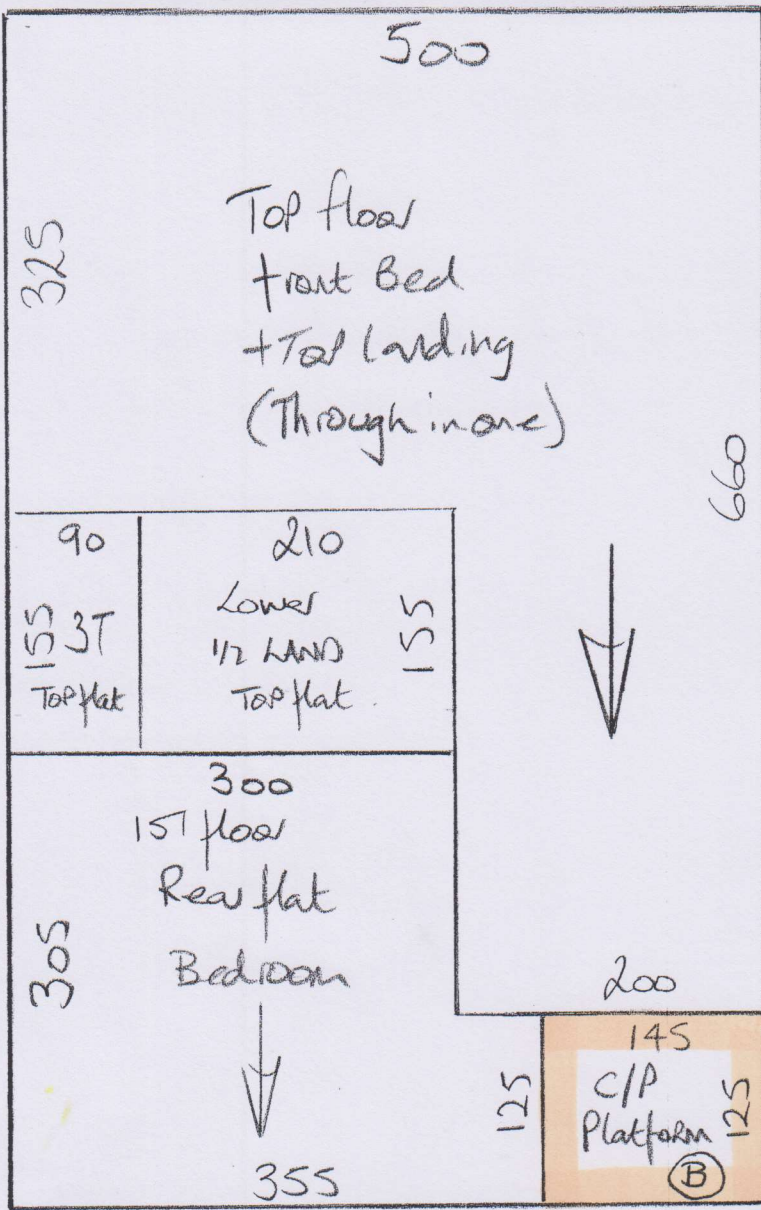 500
325
Top floor
front Bed
+ Top landing
(Through in one)
660
90
210
155
3T
Top flat
Lower
1/2 LAND
Top flat
155
300
1ST floor
Rear flat
Bedroom
305
355
200
125
145
C/P
Platform
125
B